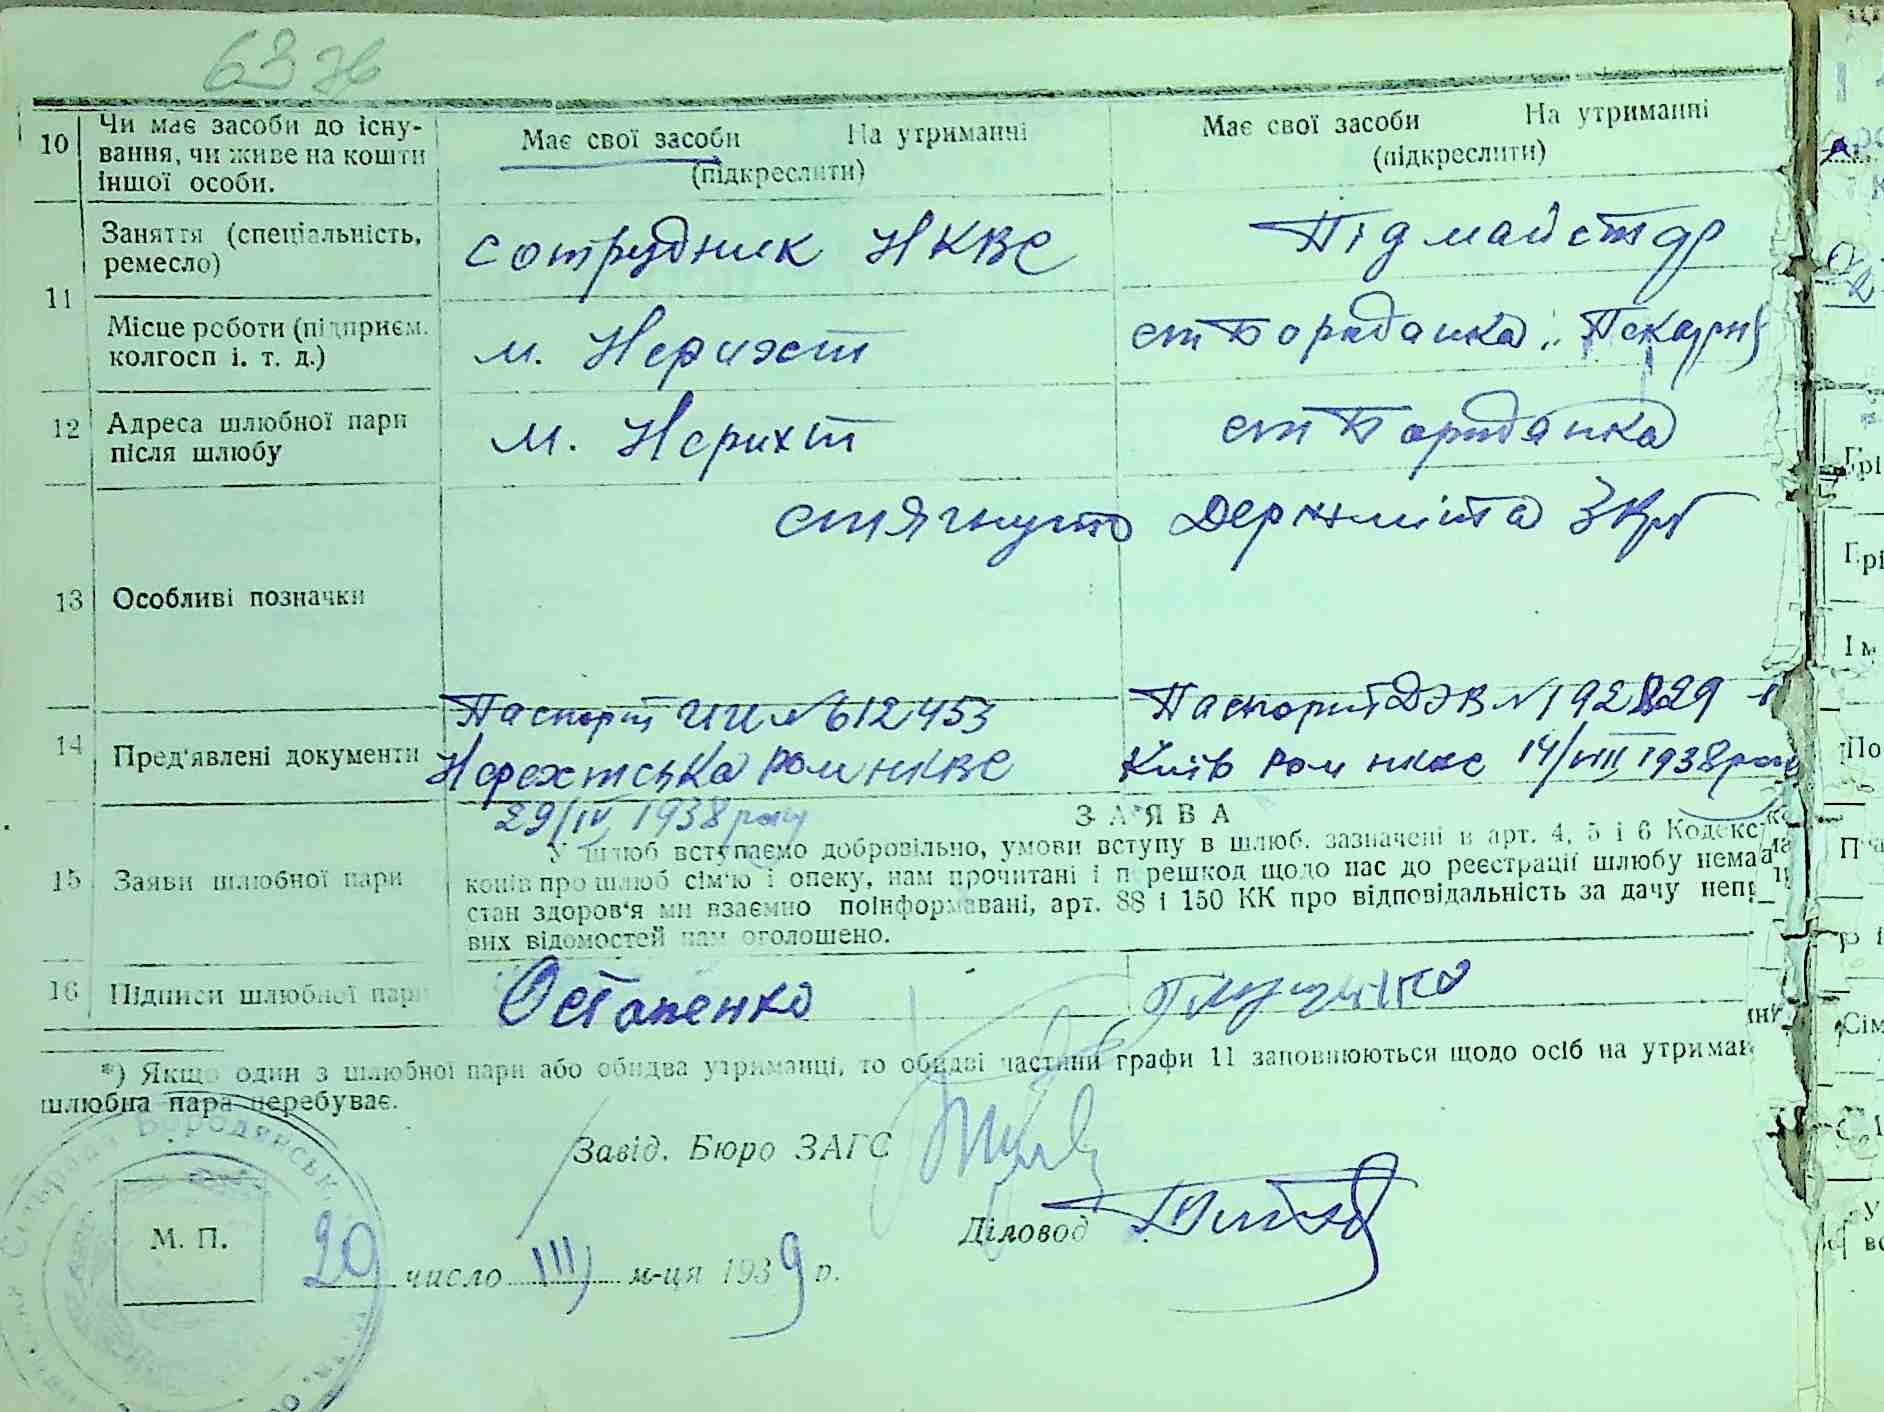 63 ж
10 Чи має засоби до існу-
вання, чи живе на кошти
іншої особи.
Має свої засоби На утриманні
(підкреслити)
Має свої засоби На утриманні
(підкреслити)
11 Заняття (спеціальність,
ремесло)
сотрудник НКВС
Підмайстер
Місце роботи (підприєм.
колгосп і. т. д.)
м. Нерихт
ст Бородянка
12 Адреса шлюбної пари
після шлюбу
м. Нерихт
ст Бородянка
13 Особливі позначки
стягнуто Держмита 3 крб
14 Пред'явлені документи
Паспорт ЧИ № 612453
Нерехтська ром НКВС
29/IV 1938 року
Паспорт ДЭВ № 192829
Київ ром нквс 14/VIII 1938 року
15 Заяви шлюбної пари
ЗАЯВА
У шлюб вступаємо добровільно, умови вступу в шлюб. зазначені в арт. 4, 5 і 6 Кодекс
конів про шлюб сім'ю і опеку, нам прочитані і п решкод щодо нас до реєстрації шлюбу нема
стан здоров'я ми взаємно поінформавані, арт. 88 і 150 КК про відповідальність за дачу непр
вих відомостей нам оголошено.
16 Підписи шлюбної пари
Остапенко
*) Якщо один з шлюбної пари або обидва утриманці, то обидві частини графи 11 заповнюються щодо осіб на утриман
шлюбна пара перебуває.
Завід. Бюро ЗАГС
Діловод
М. П.
20 число III м-ця 1939 р.